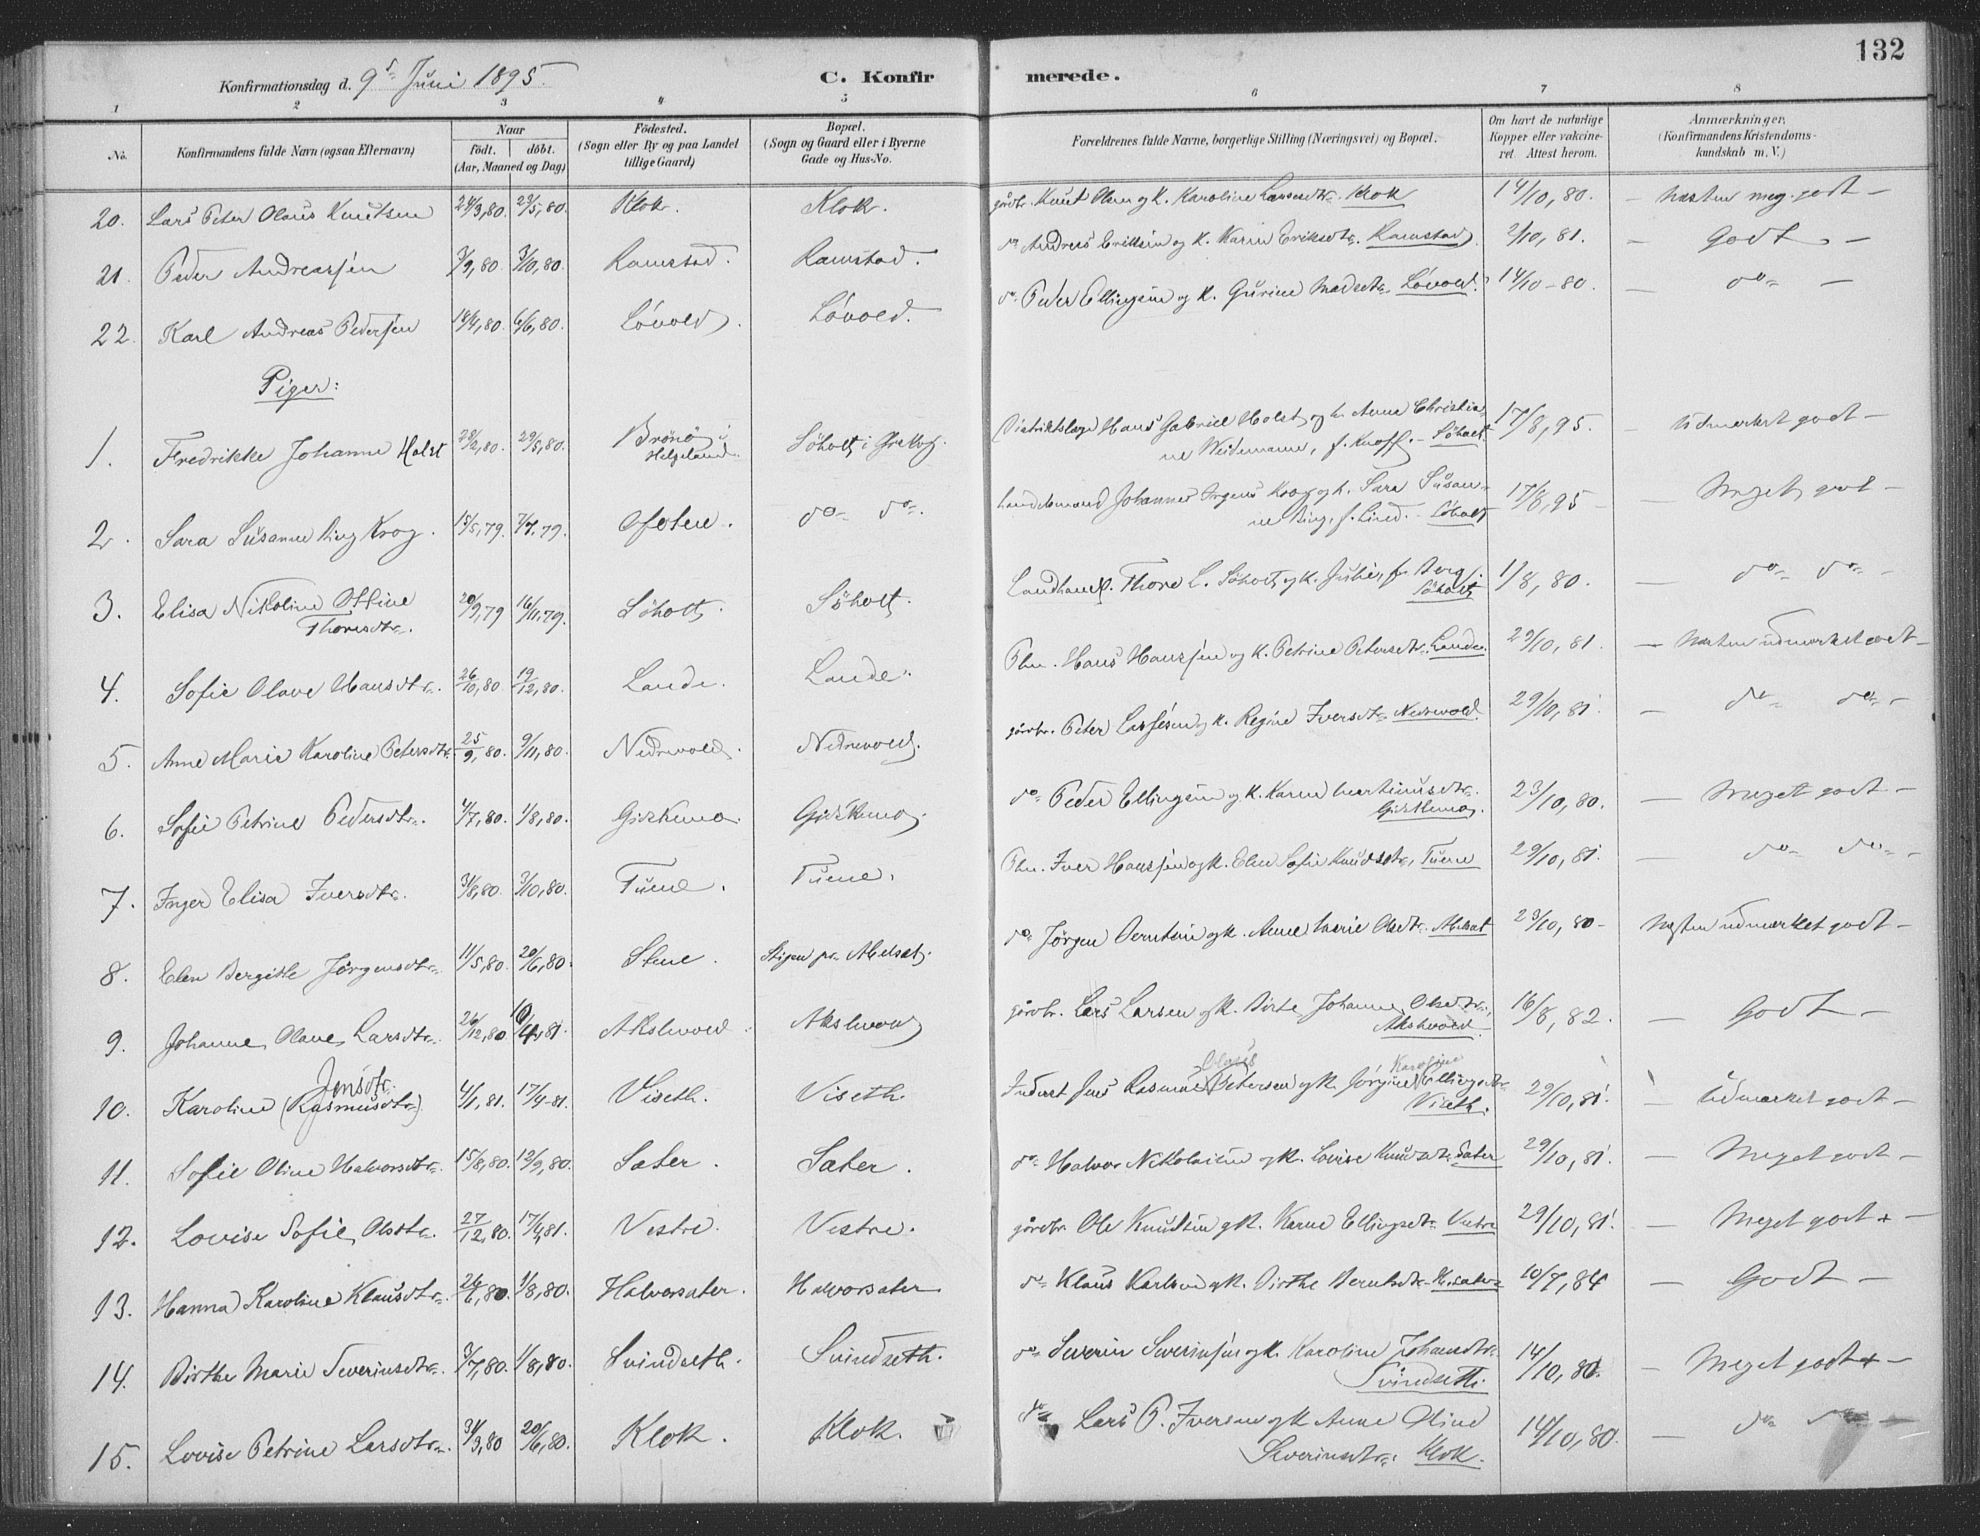 132
Konfirmationsdag d. 9de Juni 1895. C. Konfirmerede.
1 2 3 4 5 6 7 8
No. Konfirmandens fulde Navn (ogsaa Efternavn) Naar födt. döbt. (Aar, Maaned og Dag) Födested. (Sogn eller By og paa Landet tillige Gaard) Bopæl. (Sogn og Gaard eller i Byerne Gade og Hus-No. Forældrenes fulde Navne, borgerlige Stilling (Næringsvei) og Bopæl. Om havt de naturlige Kopper eller vakcineret Attest herom. Anmærkninger. (Konfirmandens Kristendomskundskab m. V.)
20. Lars Peter Olaus Knutsen 24/3,80. 23/5,80. Klok. Klok. gårdbr. Knut Olsen og K. Karoline Larsdtr. Klok 14/10,80. – Næsten meg. godt –
21. Peder Andreassen 3/9,80. 3/10,80. Ramstad. Ramstad. do Andreas Eriksen og K. Karen Eriksdtr. Ramstad. 2/10,81. – Godt –
22. Karl Andreas Pedersen 14/4,80. 6/6,80. Lövold. Lövold. do Peder Ellingsen og K. Gurine Madsdtr. Lövold. 14/10-80. – do –
Piger:
1. Fredrikke Johanne Holst 29/2,80. 29/5,80. Brönö i Helgeland. Söholt i Ørskog. Distriktslæge Hans Gabriel Holst og h. Anna Christiane Weidemann, f. Knoff. – Söholt 17/8,95. – Udmærket godt –
2. Sara Susanne Ring Krog. 15/5,79. 7/7.79. Ofoten. do do. Lendsmand Johannes Irgens Krog og h. Sara Susanne Ring, f. Lind. – Söholt 17/8,95 – Meget godt –
3. Elisa Nikoline Ottine Thoresdtr. 20/9,79 16/11.79. Söholt. Söholt. Landhandl. Thore L. Söholt og K. Julie, f. Berg. Söholt 1/8,80. – do do –
4. Sofie Olave Hansdtr. 26/10,80 19/12,80. Lande. Lande. Plm. Hans Hanssen og K. Petrine Petersdtr. Lande. 29/10,81. – Næsten udmærket godt –
5. Anne Marie Karoline Petersdtr. 25/9,80. 9/11,80. Nedrevold. Nedrevold. gårdbr. Peter Lassesen og K. Regine Iversdtr. Nedrevold. 29/10,81. – do do –
6. Sofie Petrine Pedersdtr. 4/7,80. 1/8,80. Giskemo. Giskemo. do Peder Ellingsen og K. Karen Martinusdtr. Giskemo. 23/10,80. – Meget godt –
7. Inger Elisa Iversdtr. 3/8,80. 3/10,80. Tuene. Tuene. Plm. Iver Hanssen og K. Elen Sofie Knudsdtr. Tuene 29/10,81. – do do –
8. Elen Bergitte Jörgensdtr. 11/5,80. 20/6,80. Stene. Stigen pr. Abelset. do Jörgen Berntsen og K. Anne Marie Olsdtr. Abelset 23/10,80 – Næsten udmærket godt –
9. Johanne Olave Larsdtr. 26/12,80 10/4,81. Akslevold. Akslevold gårdbr. Lars Larsen og K. Birte Johanne Olsdtr., Akslevold. 16/8,82. – Godt –
10. Karoline (Rasmusdtr.) Jensdtr. 4/1,81. 17/4-81. Viseth. Viseth. Inderst Jens Rasmus Olaus Petersen og K. Jörgine Karoline Ellingsdtr. Viseth. 29/10,81. – Udmærket godt –
11. Sofie Oline Halvorsdtr. 15/8,80. 12/9,80. Sæter. Sæter. do Halvor Nikolaisen og K. Lovise Knudsdtr. Sæter 29/10,81. – Meget godt –
12. Lovise Sofie Olsdtr. 27/12,80. 17/4,81. Vestre. Vestre. gårdbr. Ole Knutsen og K. Karen Ellingsdtr. Vestre 29/10,81. – Meget godt + –
13. Hanna Karoline Klausdtr. 26/6,80. 1/8,80. Halvorsæter. Halvorsæter do Klaus Karlsen og K. Birthe Berntsdtr. H.sæter 10/7,84 – Godt –
14. Birthe Marie Severinsdtr. 3/7,80. 1/8,80. Svindseth. Svindseth. do Severin Severinsen og K. Karoline Johansdtr. Svindseth. 14/10,80. – Meget godt + –
15. Lovise Petrine Larsdtr. 31/3,80 20/6,80. Klok. Klok. do Lars P. Iversen og K Anne Oline Severinsdtr. Klok. 14/10,80. – do do –